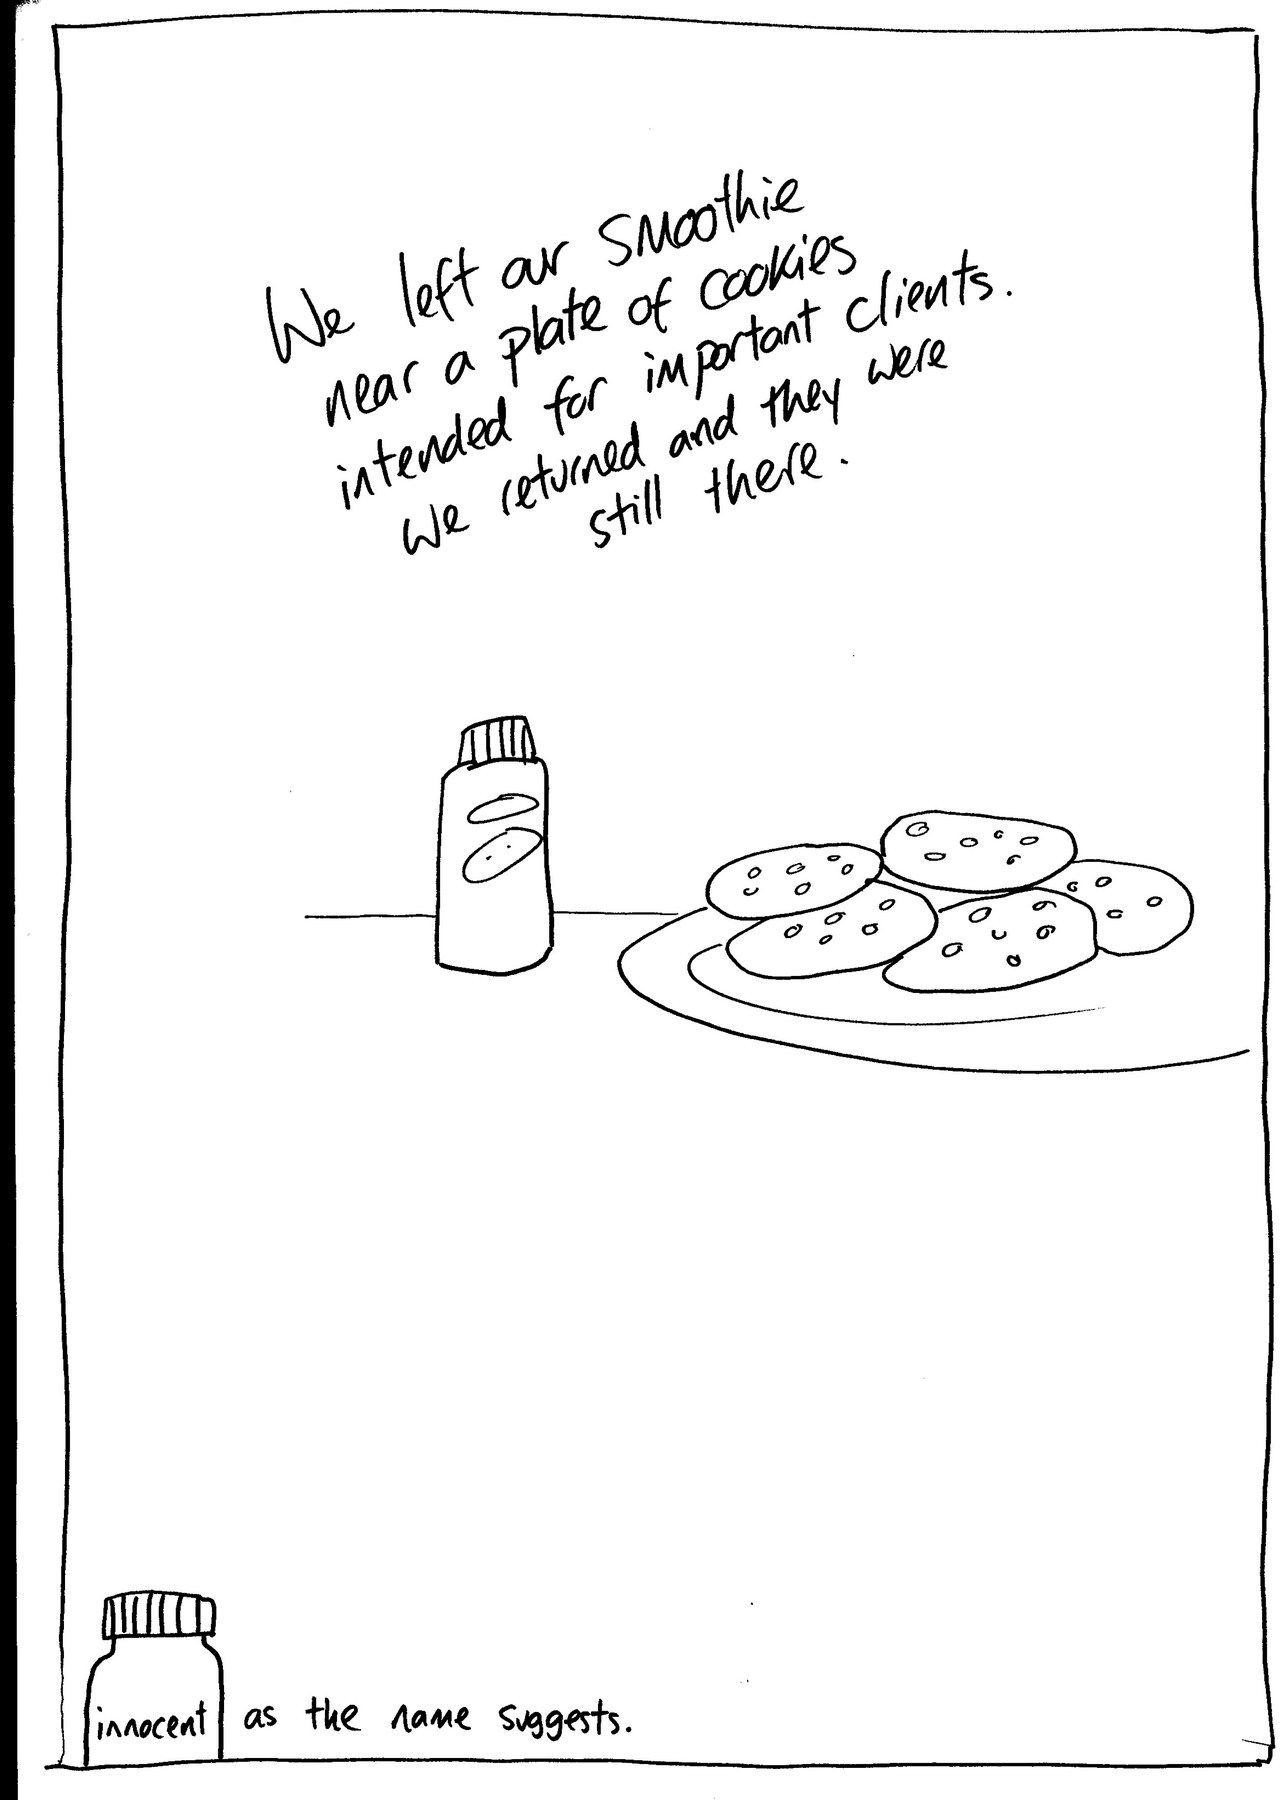 We left our smoothie
near a plate of cookies
intended for important clients.
We returned and they were
still there.
innocent as the name suggests.